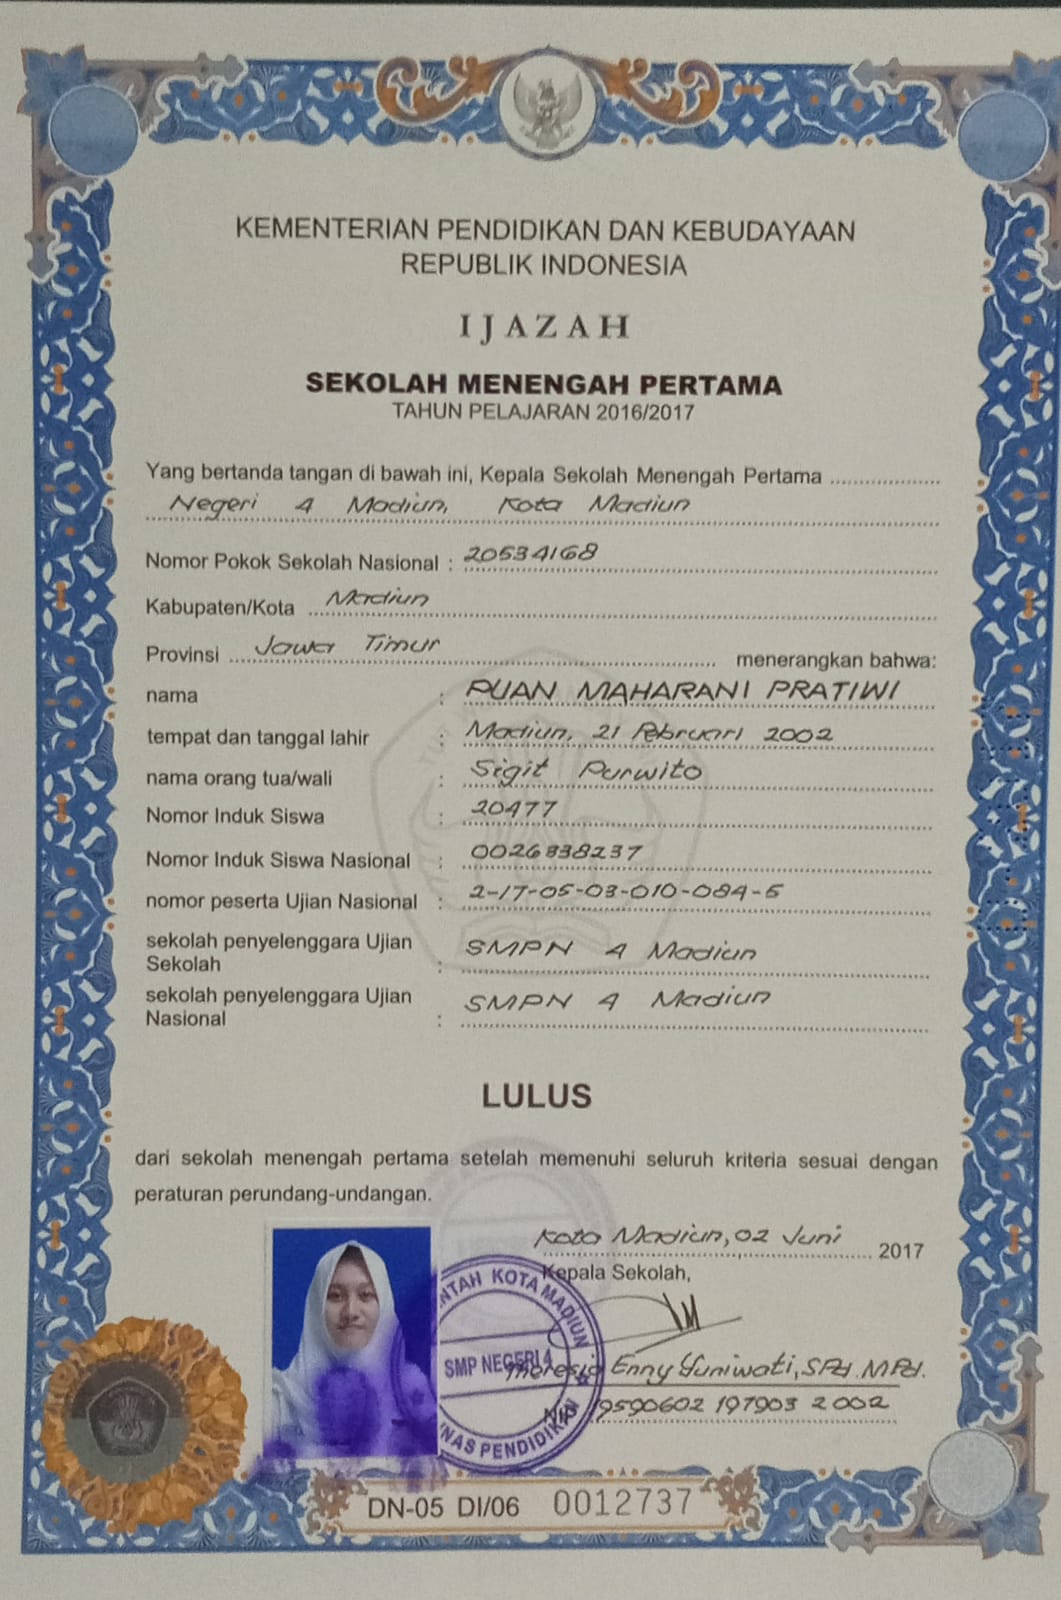 KEMENTERIAN PENDIDIKAN DAN KEBUDAYAAN
REPUBLIK INDONESIA
IJAZAH
SEKOLAH MENENGAH PERTAMA
TAHUN PELAJARAN 2016/2017
Yang bertanda tangan di bawah ini, Kepala Sekolah Menengah Pertama
Negeri 4 Madiun, Kota Madiun
Nomor Pokok Sekolah Nasional : 20534168
Kabupaten/Kota Madiun
Provinsi Jawa Timur menerangkan bahwa:
nama : PUAN MAHARANI PRATIWI
tempat dan tanggal lahir : Madiun, 21 Februari 2002
nama orang tua/wali : Sigit Purwito
Nomor Induk Siswa : 20477
Nomor Induk Siswa Nasional : 0026838237
nomor peserta Ujian Nasional : 2-17-05-03-010-084-5
sekolah penyelenggara Ujian
Sekolah : SMPN 4 Madiun
sekolah penyelenggara Ujian
Nasional : SMPN 4 Madiun
LULUS
dari sekolah menengah pertama setelah memenuhi seluruh kriteria sesuai dengan
peraturan perundang-undangan.
Kota Madiun, 02 Juni 2017
Kepala Sekolah,
NTAH KOTA MADIUN
SMP NEGERI 4
NAS PENDIDIKAN
Theresia Enny Yuniwati, SPd. MPd.
NIP 19590602 197903 2 002
DN-05 DI/06 0012737